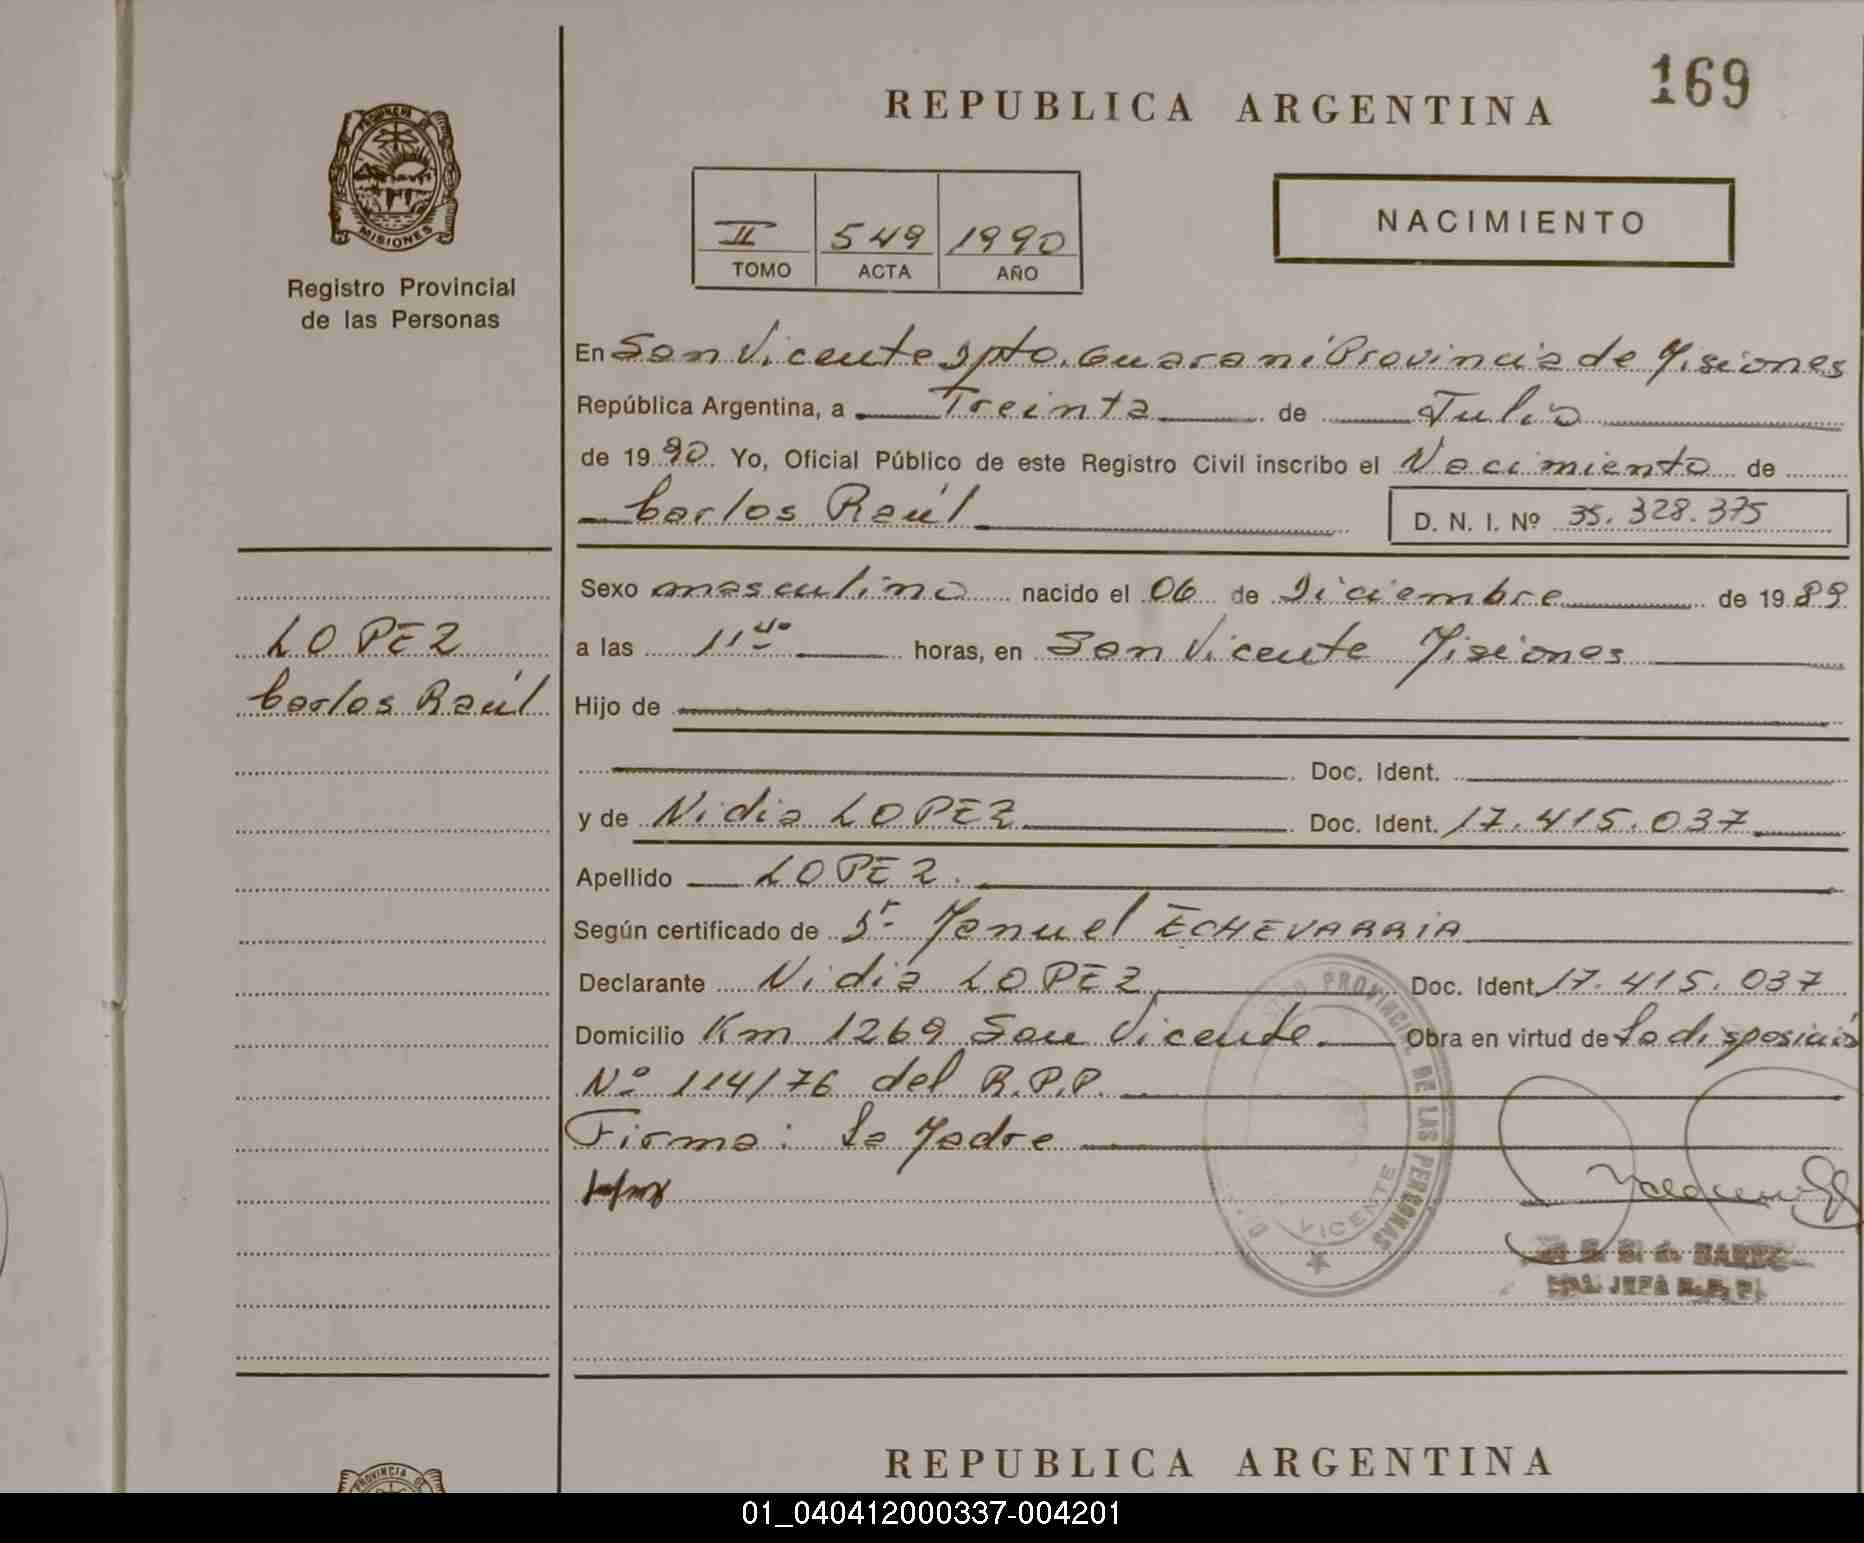 REPUBLICA ARGENTINA
169
PROVINCIA DE
MISIONES
Registro Provincial
de las Personas
II 549 1990
TOMO ACTA AÑO
NACIMIENTO
En San Vicente Dpto. Guaraní Provincia de Misiones
República Argentina, a Treinta de Julio
de 1990. Yo, Oficial Público de este Registro Civil inscribo el Nacimiento de
Carlos Raúl
D. N. I. Nº 35.328.375
Sexo masculino nacido el 06 de Diciembre de 1989
LOPEZ
a las 11 40 horas, en San Vicente Misiones
Carlos Raúl
Hijo de
Doc. Ident.
y de Nidia LOPEZ Doc. Ident. 17.415.037
Apellido LOPEZ.
Según certificado de Dr. Manuel ECHEVARRIA
Declarante Nidia LOPEZ Doc. Ident. 17.415.037
Domicilio Km 1269 San Vicente Obra en virtud de La disposición
Nº 114/76 del R.P.P.
Firma: La Madre
PROVINCIAL DE LAS PERSONAS
VICENTE
JEFA
REPUBLICA ARGENTINA
PROVINCIA DE
01_040412000337-004201